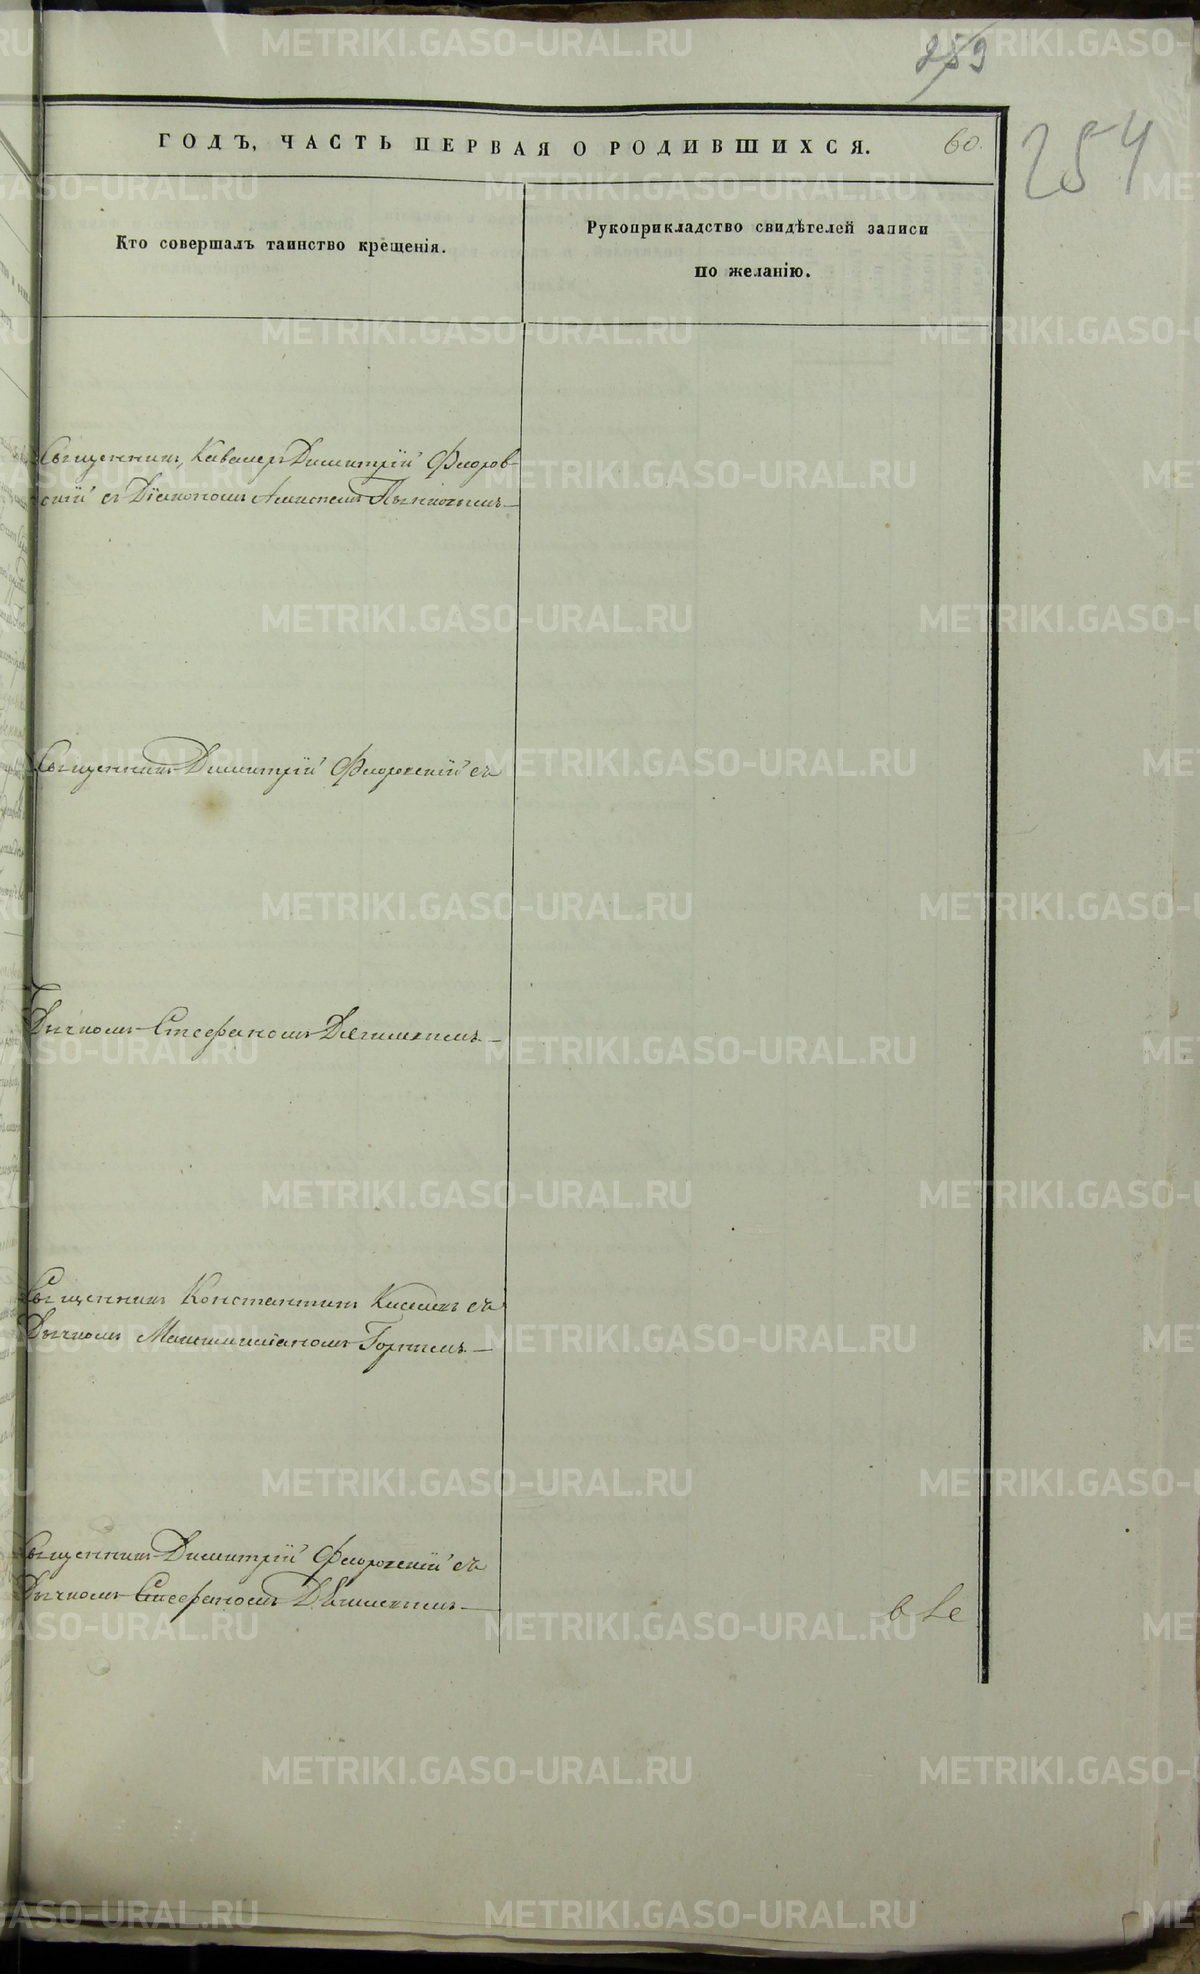 259
254
ГОДЪ, ЧАСТЬ ПЕРВАЯ О РОДИВШИХСЯ. 60.
Кто совершалъ таинство крещенія.
Рукоприкладство свидѣтелей записи
по желанію.
Священникъ, Кавалеръ Димитрій Флоров-
скій съ Діакономъ Алексѣемъ
Священникъ Димитрій Флоровскій съ
Дьячкомъ Стефаномъ Дягилевымъ. —
Священникъ Константинъ Киселевъ съ
Дьячкомъ Максимиліаномъ Горнымъ. —
Священникъ Димитрій Флоровскій съ
Дьячкомъ Стефаномъ Дягилевымъ. —
METRIKI.GASO-URAL.RU